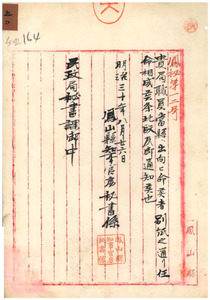 鳳秘第一三号
貴局職員當縣ニ出向ヲ命美者別紙之通リ任
命相成候条此段及御通知候也
明治三十年八月廿六日
鳳山縣知事官房秘書係
民政局秘書課御中
鳳山縣
164